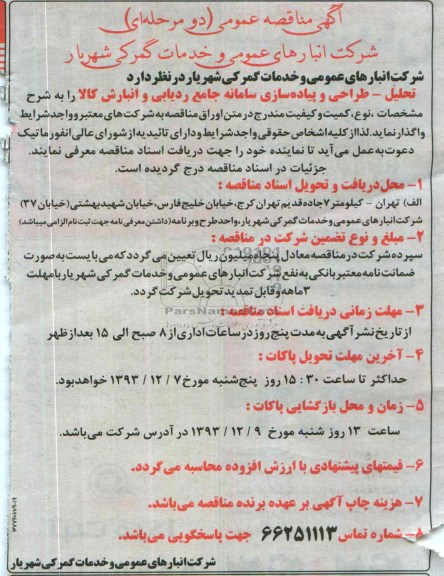 آگهی مناقصه عمومی (دو مرحله‌ای)
شرکت انبارهای عمومی و خدمات گمرکی شهریار
شرکت انبارهای عمومی و خدمات گمرکی شهریار در نظر دارد
تحلیل - طراحی و پیاده‌سازی سامانه جامع ردیابی و انبارش کالا را به شرح
مشخصات ، نوع، کمیت و کیفیت مندرج در متن اوراق مناقصه به شرکت‌های معتبر و واجد شرایط
واگذار نماید. لذا از کلیه اشخاص حقوقی واجد شرایط و دارای تائیدیه از شورای عالی انفورماتیک
دعوت به عمل می‌آید تا نماینده خود را جهت دریافت اسناد مناقصه معرفی نمایند.
جزئیات در اسناد مناقصه درج گردیده است.
۱- محل دریافت و تحویل اسناد مناقصه :
الف) تهران - کیلومتر ۷ جاده قدیم تهران کرج، خیابان خلیج فارس، خیابان شهید بهشتی (خیابان ۳۷)
شرکت انبارهای عمومی و خدمات گمرکی شهریار، واحد طرح و برنامه (داشتن معرفی نامه جهت ثبت نام الزامی میباشد)
۲- مبلغ و نوع تضمین شرکت در مناقصه :
سپرده شرکت در مناقصه معادل پنجاه میلیون ریال تعیین می گردد که می بایست به صورت
ضمانت نامه معتبر بانکی به نفع شرکت انبارهای عمومی و خدمات گمرکی شهریار با مهلت
۳ ماهه و قابل تمدید تحویل شرکت گردد.
۳- مهلت زمانی دریافت اسناد مناقصه :
از تاریخ نشر آگهی به مدت پنج روز در ساعات اداری از ۸ صبح الی ۱۵ بعدازظهر
۴- آخرین مهلت تحویل پاکات :
حداکثر تا ساعت ۳۰ : ۱۵ روز پنج‌شنبه مورخ ۷ / ۱۲ / ۱۳۹۳ خواهد بود.
۵- زمان و محل بازگشایی پاکات :
ساعت ۱۳ روز شنبه مورخ ۹ / ۱۲ / ۱۳۹۳ در آدرس شرکت می‌باشد.
۶- قیمتهای پیشنهادی با ارزش افزوده محاسبه می‌گردد.
۷- هزینه چاپ آگهی بر عهده برنده مناقصه می‌باشد.
۸- شماره تماس ۶۶۲۵۱۱۱۳ جهت پاسخگویی می‌باشد.
شرکت انبارهای عمومی و خدمات گمرکی شهریار